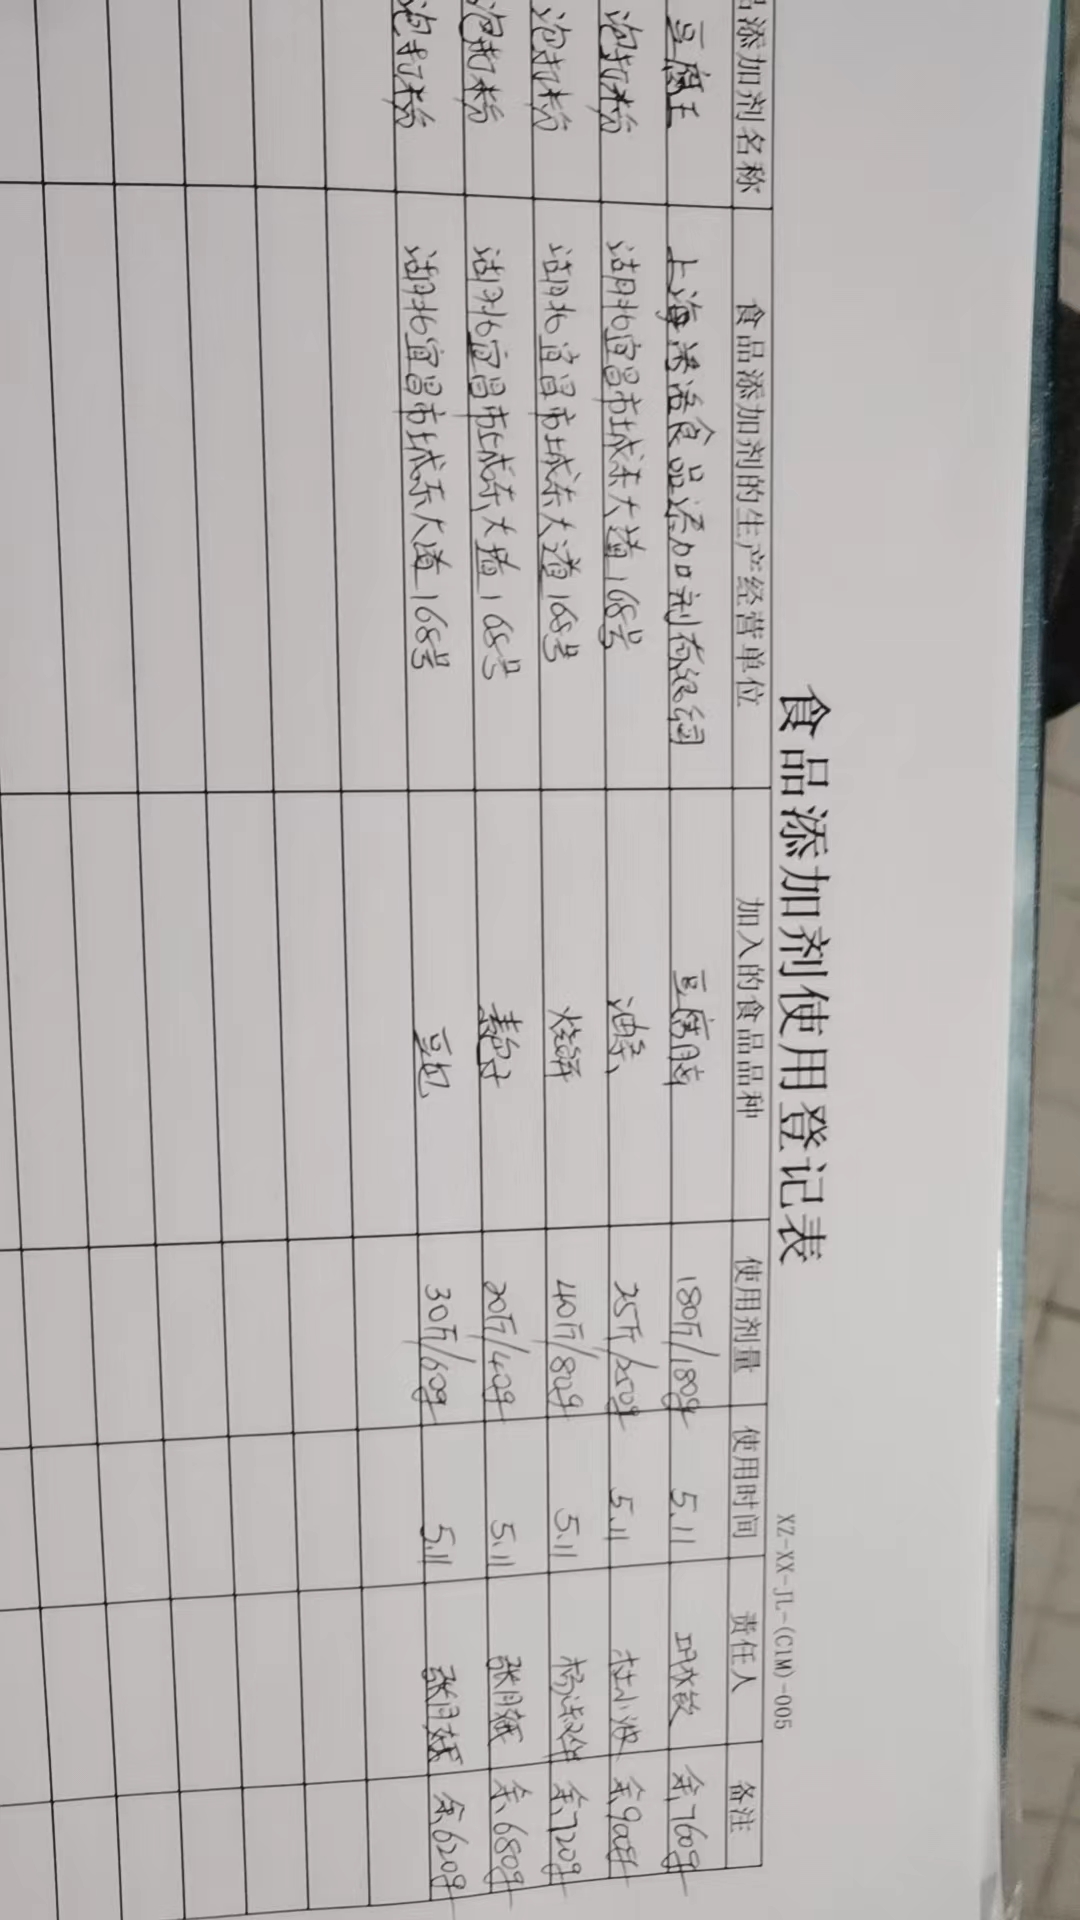 食品添加剂使用登记表
XZ-XX-JL-(CIM)-005
品添加剂名称 食品添加剂的生产经营单位 加入的食品品种 使用剂量 使用时间 责任人 备注
豆腐王 上海 洁食品添加剂有限公司 豆腐脑 180斤/180g 5.11 余760g
泡打粉 湖北宜昌市城东大道168号 油条 25斤/250g 5.11 杜小波 余900g
泡打粉 湖北宜昌市城东大道168号 烧饼 40斤/80g 5.11 余720g
泡打粉 湖北宜昌市城东大道168号 20斤/40g 5.11 张月 余680g
泡打粉 湖北宜昌市城东大道168号 豆包 30斤/60g 5.11 张月 余620g